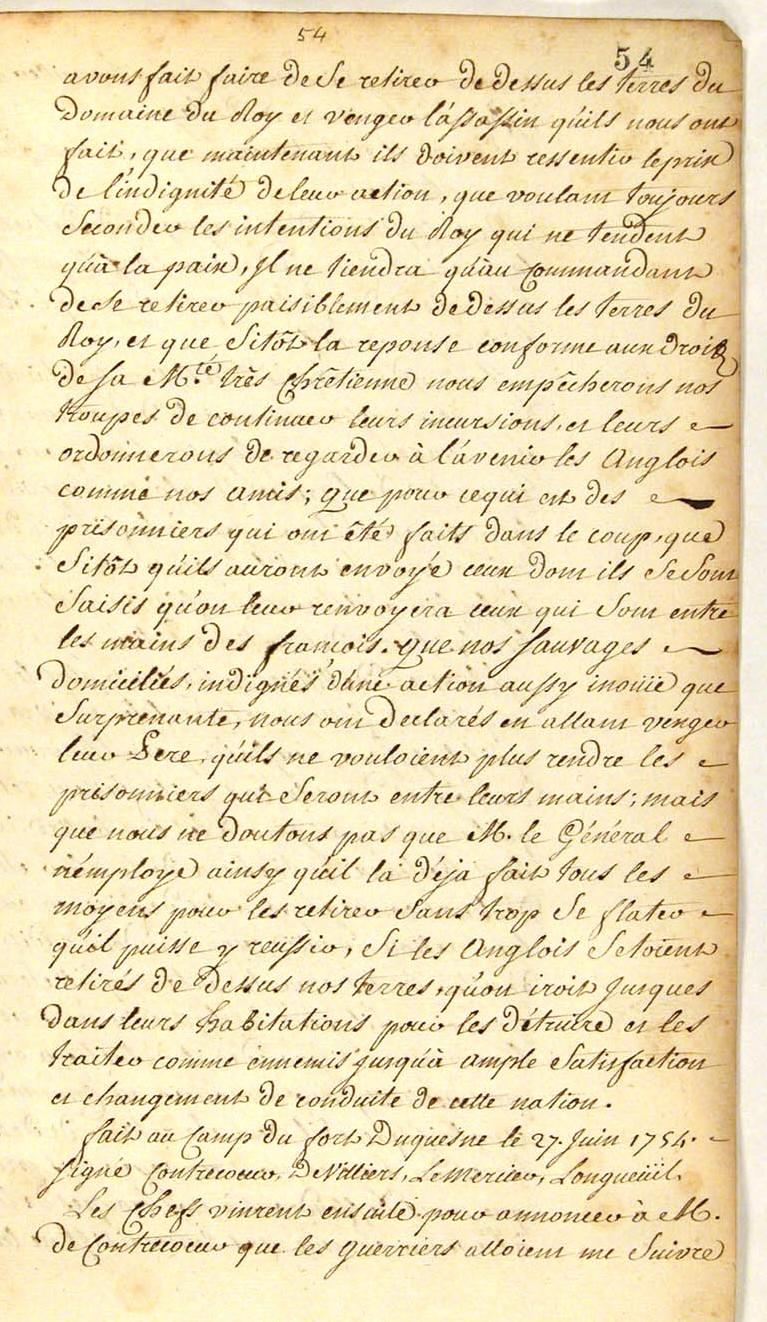 54
54
avons fait faire de se retirer de dessus les terres du
Domaine du Roy et venger l'assassin qu'ils nous ont
fait, que maintenant ils doivent ressentir le prix
de l'indignité de leur action, que voulant toujours
seconder les intentions du Roy qui ne tendent
qu'à la paix, Il ne tiendra qu'au Commandant
de se retirer paisiblement de dessus les terres du
Roy, et que sitôt la reponse conforme aux Droits
de sa M.té très Chrêtienne nous empêcherons nos
troupes de continuer leurs incursions, et leurs
ordonnerons de regarder à l'avenir les Anglois
comme nos amis; Que pour ce qui est des
prisonniers qui ont été faits dans le coup, que
sitôt qu'ils auront envoyé ceux dont ils se sont
saisis qu'on leur renvoyera ceux qui sont entre
les mains des francois. Que nos sauvages
domiciliés, indignés d'une action aussy inouïe que
surprenante, nous ont declarés en allant venger
leur Pere, qu'ils ne vouloient plus rendre les
prisonniers qui seront entre leurs mains; mais
que nous ne doutons pas que M. le Général
n'employe ainsy qu'il la déja fait tous les
moyens pour les retirer sans trop se flater
qu'il puisse y reussir, Si les Anglois s'etoient
retirés de dessus nos terres, qu'on iroit jusques
dans leurs habitations pour les détruire et les
traiter comme ennemis jusqu'à ample satisfaction
et changement de conduite de cette nation.
fait au Camp du fort Duquesne le 27. Juin 1754.
signé Contrecoeur, De Villiers, Le Mercier, Longueüil.
Les Chefs vinrent ensuite pour annoncer à M.
de Contrecoeur que les guerriers alloient me suivre